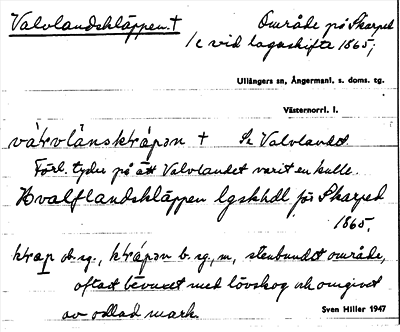 Valvlandskläppen. † Område på Skarped
1/2 vid lagaskifte 1865;
Ullångers sn, Ångermanl. s. doms. tg.
Västernorrl. l.
vàrvlånskràpən † Se Valvlandet
Förl. tyder på att Valvlandet varit en kulle.
Hvalflandskläppen lgskhdl för Skarped
1865;
krap ob. sg., kràpən b. sg., m, stenbundet område,
oftast bevuxet med lövskog och omgivet
av odlad mark.
Sven Hiller 1947